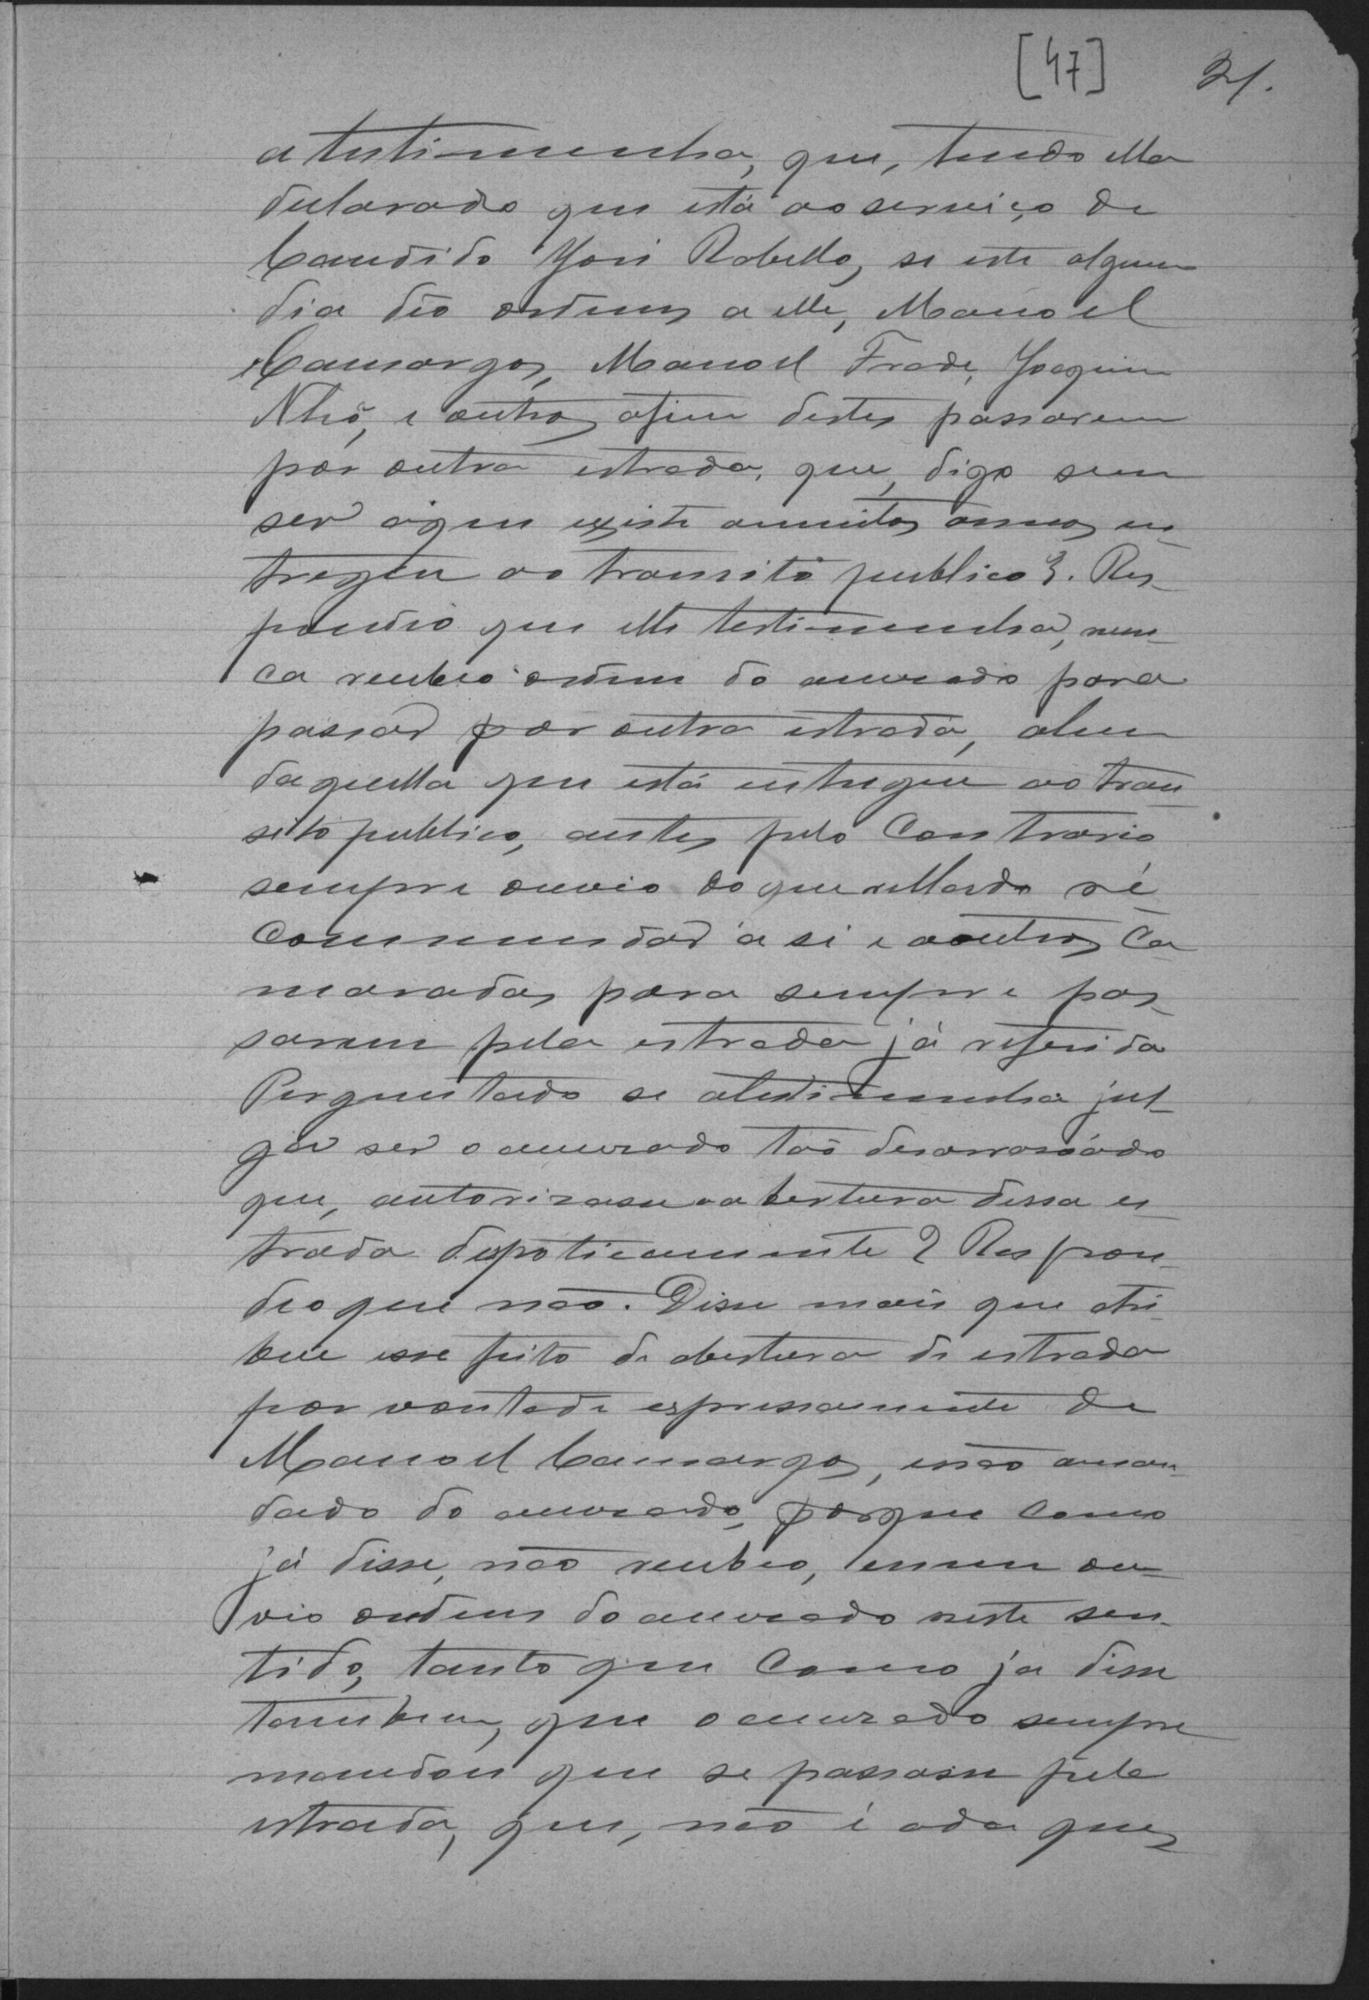 [47] 31.
a testimunha, que, tendo ella
declarado que está ao serviço de
Candido José Rabello, se este algum
dia deo ordens a elle, Manoel
Camargos, Manoel Frade, Joaquim
Nhô, e outros afim destes passarem
por outra estrada, que, digo sem
ser a que existe a muitos annos en-
tregue ao transito publico?. Res-
pondeo que elle testimunha, nun-
ca recebeo ordem do accusado para
passar por outra estrada, alem
daquella que está entregue ao tran
sito publico, antes pelo contrario
sempre ouvio do querellado re-
commendar a si e a outros ca
maradas para sempre pas-
sarem pela estrada já referida
Perguntado se a testimunha jul-
ga ser o accusado tão desarrasoado
que, autorizasse a abertura dessa es
trada despoticamente? Respon-
deo que não. Disse mais que atri-
bue esse feito de abertura de estrada
por vontade espressamente de
Manoel Camargos, e não a man-
dado do accusado, porque como
já disse, não recebeo, e nem ou-
vio ordens do accusado neste sen-
tido, tanto que como já disse
tambem, que o accusado sempre
mandou que se passasse pela
estrada, que, não é a da ques